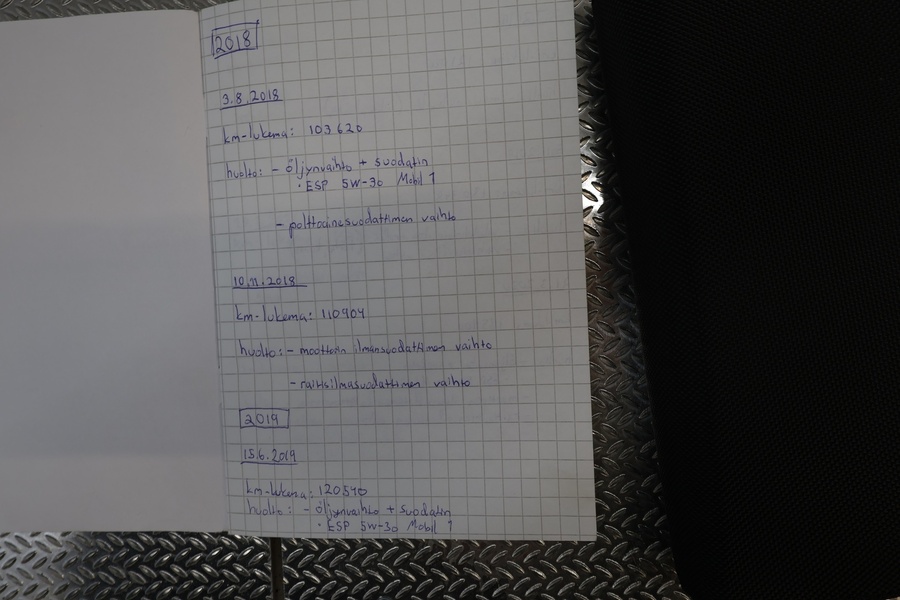 2018
3.8.2018
km-lukema: 103620
huolto: - öljynvaihto + suodatin
· ESP 5W-30 Mobil 1
- polttoainesuodattimen vaihto
10.11.2018
km-lukema: 110904
huolto: - moottorin ilmansuodattimen vaihto
- raitisilmasuodattimen vaihto
2019
15.6.2019
km-lukema: 120540
huolto: - öljynvaihto + suodatin
· ESP 5W-30 Mobil 1